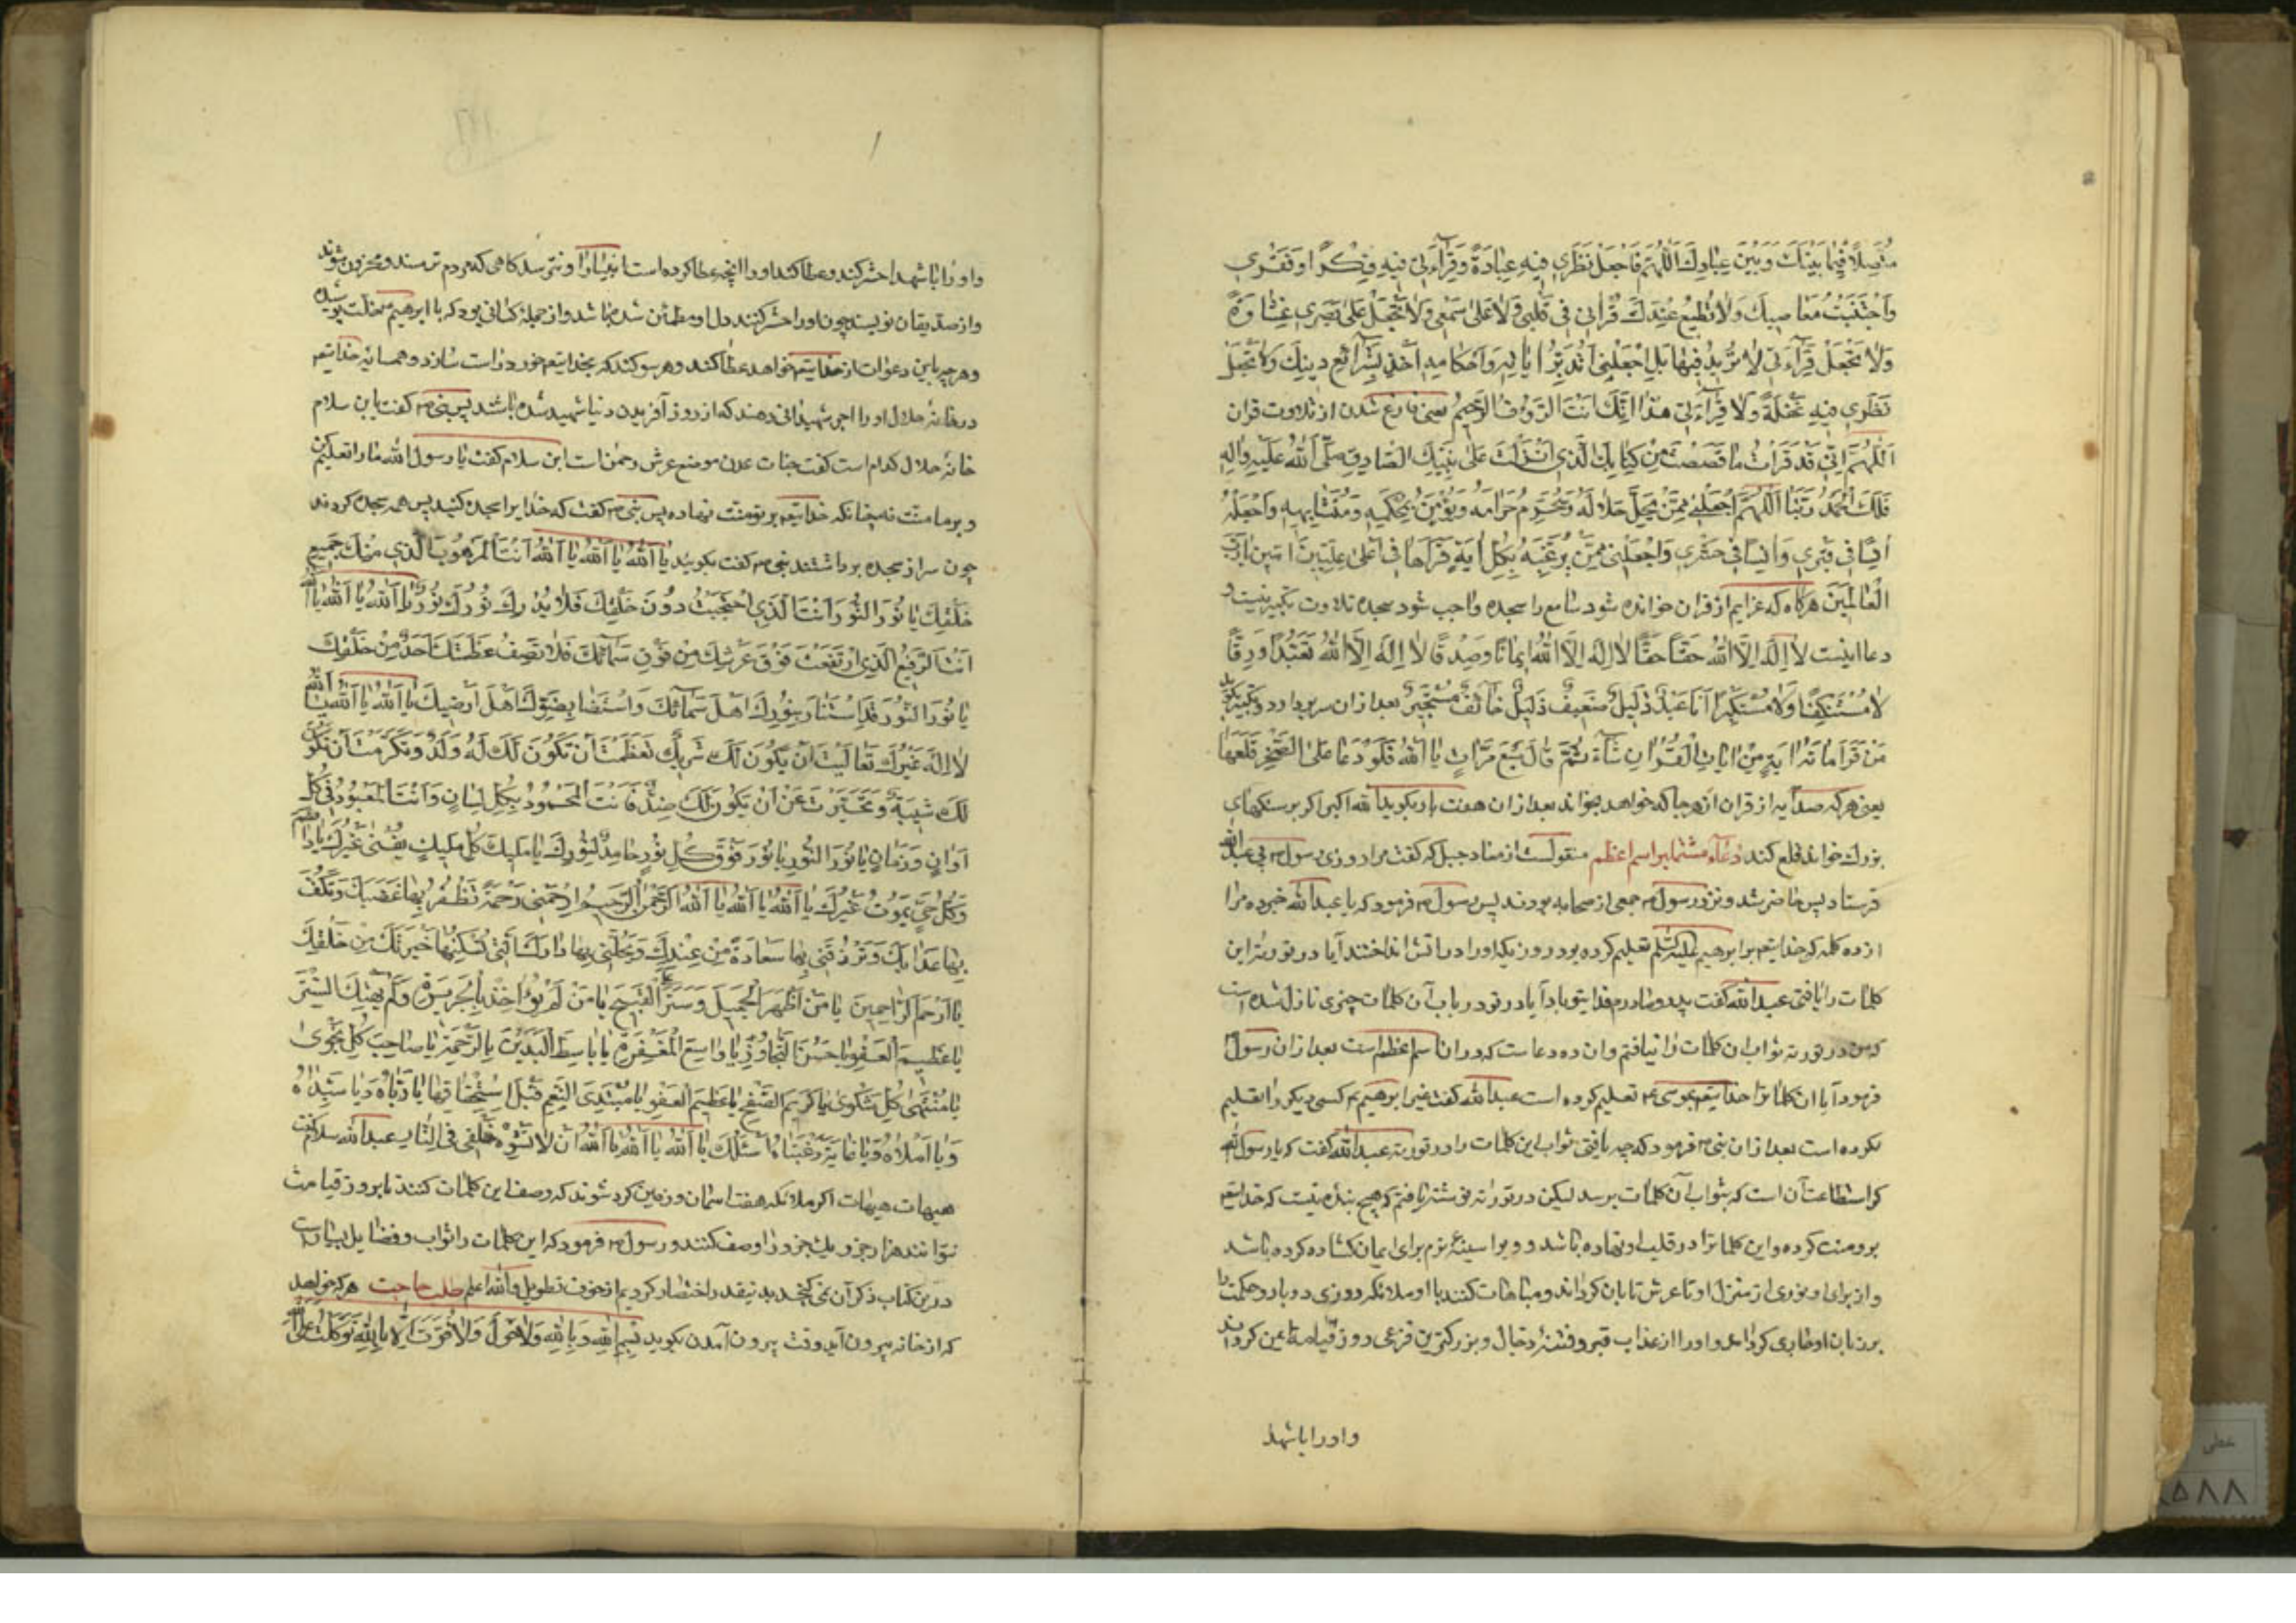 متصلا فیما بینک وبین عبادک اللهم فاجعل نظری فیه عبادة وقرآءتی فیه فکرا وفکری
واجتنبت معاصیک ولا تطبع عندک قرآنی فی قلبی ولا علی سمعی ولا تجعل علی بصری غشاوة
ولا تجعل قرآءتی لا تدبر فیها بل اجعلنی اتدبر ایاته واحکامه آخذ بشرآئع دینک ولا تجعل
نظری فیه غفلة ولا قرآءتی هذرا انک انت الرؤف الرحیم بعد فارغ شدن از تلاوت قران
اللهم انی قد قرات ما قصصت من کتابک الذی انزلت علی نبیک الصادق صلی الله علیه واله
فلک الحمد ربنا اللهم اجعلنی ممن یحل حلاله ویحرم حرامه ویؤمن بمحکمه ومتشابهه واجعله
انسا فی قبری وانسا فی حشری واجعلنی ممن برغبه بکل ایة قراها فی اعلی علیین امین یا رب
العالمین هرکاه که عزایم از قران خوانده شود سامع را سجده واجب شود سجده تلاوت تکبیر نیست و
دعا اینست لا اله الا الله حقا حقا لا اله الا الله ایمانا وصدقا لا اله الا الله تعبدا ورقا
لا مستنکفا ولا مستکبرا انا عبد ذلیل ضعیف ذلیل خآئف مستجیر بعد از ان سر بردارد وتکبیر بکوید
من قرا مائة ایة من ایات القران شآء ثم قال سبع مرات یا الله فلو دعا علی الصخر قلعها
یعنی هرکه صد آیه از قران از هر جا که خواهد بخواند بعد از ان هفت بار بکوید یا الله اکر بر سنکهای
بزرک خواند قلع کند دعاء مشتمل بر اسم اعظم منقولست از معاذ جبل که کفت مرا روزی رسول ص پی عبد الله
فرستاد پس حاضر شد ونزد رسول ص جمعی از صحابه بودند پس رسول ص فرمود که یا عبد الله خبر ده مرا
از ده کلمه که خدایتع بر ابرهیم علیه السلم تعلیم کرده بود روزیکه او را در اتش انداختند آیا در توریة این
کلمات را یافتی عبد الله کفت پدر ومادرم فدای تو باد آیا در تو در باب آن کلمات چیزی نازل شده است
که من در توریة ثواب ان کلمات را نیافتم وان ده دعاست که در ان اسم اعظم است بعد از ان رسول
فرمود آیا ان کلماترا خدایتع بموسی ع تعلیم کرده است عبد الله کفت غیر ابرهیم ع کسی دیکر را تعلیم
نکرده است بعد از ان نبی ص فرمود که چه یافتی ثواب این کلمات را در توریة عبد الله کفت که یا رسول الله
کرا استطاعت آن است که بثواب آن کلمات برسد لیکن در توراة نوشته یافتم که هیچ بنده نیست که خدایتع
برو منت کرده واین کلماترا در قلب او نهاده باشد ویرا سینه نرم برای ایمان کشاده کرده باشد
واز برای او نوری از منزل او تا عرش تابان کرداند ومباهات کنند با او ملائکه روزی دو بار وحکمت را
بر زبان او جاری کرداند واو را از عذاب قبر وفتنهٔ دجال وبزرکترین فزعی روز قیامة ایمن کرداند
واو را با شهدا
واو را با شهدا حشر کند وعطا کند او را انچه عطا کرده است انبیا را ونترسد کاهی که مردم ترسند ومحزون شوند
واز صدیقان نویسند چون او را حشر کنند دل او مطمئن شده باشد واز جمله کسانی بود که با ابرهیم بخلت پوشیده
وهرچه باین دعوات از خدایتع خواهد عطا کند وهر سوکند که بخدایتع خورد راست سازد وهمسایه خدایتع
در خانه جلال او را اجر شهیدانی دهند که از روز آفریدن دنیا شهید شده باشند پس نبی ص کفت یا بن سلام
خانه جلال کدام است کفت جنات عدن موضع عرش رحمن است ابن سلام کفت یا رسول الله ما را تعلیم کن
وبر ما منت نه چنانکه خدایتع بر تو منت نهاده پس نبی ص کفت که خدایرا سجده کنید پس همه سجده کردند
چون سر از سجده برداشتند نبی ص کفت بکویید یا الله یا الله یا الله انت المرهوب الذی منک جمیع
خلقک یا نور النور انت الذی احتجبت دون خلقک فلا یدرک نورک نور یا الله یا الله یا الله
انت الرفیع الذی ارتفعت فوق عرشک من فوق سمآئک فلا یصف عظمتک احد من خلقک
یا نور النور قد استنار بنورک اهل سمآئک واستضآء بضوئک اهل ارضک یا الله یا الله یا الله
لا اله غیرک تعالیت ان یکون لک شریک تعظمت ان تکون لک له ولد وتکرمت ان یکون
لک شبیه وتجبرت عن ان یکون لک ضد فانت المحمود بکل لسان وانت المعبود فی کل
اوان وزمان یا نور النور یا نور فوق کل نور خامد لنورک یا ملیک کل ملیک یفنی غیرک یا دائم
وکل حی یموت غیرک یا الله یا الله یا الله الرحمن الرحیم ارحمنی رحمة تطفئ بها غضبک وتکف
بها عذابک وترزقنی بها سعادة من عندک وتحلنی بها دارک التی تسکنها خیرتک من خلقک
یا ارحم الراحمین یا من اظهر الجمیل وستر القبیح یا من لم یؤاخذ بالجریرة ولم یهتک الستر
یا عظیم العفو یا حسن التجاوز یا واسع المغفرة یا باسط الیدین بالرحمة یا صاحب کل نجوی
یا منتهی کل شکوی یا کریم الصفح یا عظیم العفو یا مبتدئ النعم قبل استحقاقها یا رباه ویا سیداه
ویا املاه ویا غایة رغبتاه اسئلک یا الله یا الله یا الله ان لا تشوه خلقی فی النار عبد الله سلام کفت
هیهات هیهات اکر ملائکه هفت اسمان وزمین کرد شوند که وصف این کلمات کنند تا بروز قیامت
نتوانند هزار جزو یک جزو را وصف کنند ورسول ص فرمود که این کلمات را ثواب وفضایل بسیار است
درین کتاب ذکر آن نمی کنجد بدینقدر اختصار کردیم از خوف تطویل والله اعلم طلب حاجت هرکه خواهد
که از خانه بیرون آید وقت بیرون آمدن بکوید بسم الله وبالله ولا حول ولا قوة الا بالله توکلت علی الله
۵۸۸